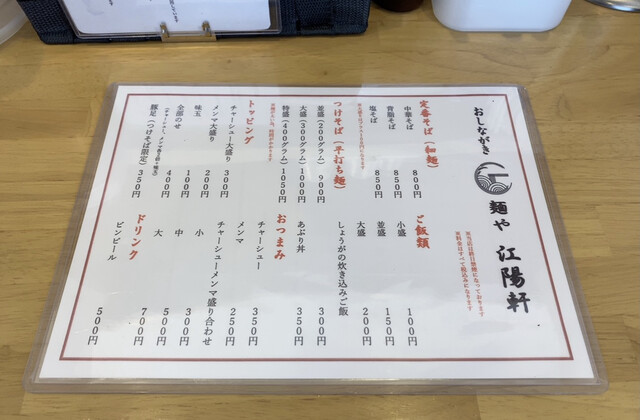 おしながき
麺や 江陽軒
※当店は終日禁煙になっております
※料金はすべて税込みになります
定番そば(細麺)
中華そば 800円
背脂そば 850円
塩そば 850円
つけそば(平打ち麺)
並盛(200グラム) 900円
大盛(300グラム) 1000円
特盛(400グラム) 1050円
トッピング
チャーシュー大盛り 300円
メンマ大盛り 200円
味玉 100円
全部のせ 400円
(チャーシュー、メンマ盛り別+味玉)
豚足(つけそば限定) 350円
ご飯類
小盛 100円
並盛 150円
大盛 200円
しょうがの炊き込みご飯 300円
あぶり丼 350円
おつまみ
チャーシュー 350円
メンマ 250円
チャーシューメンマ盛り合わせ
小 300円
中 500円
大 700円
ドリンク
ビンビール 500円